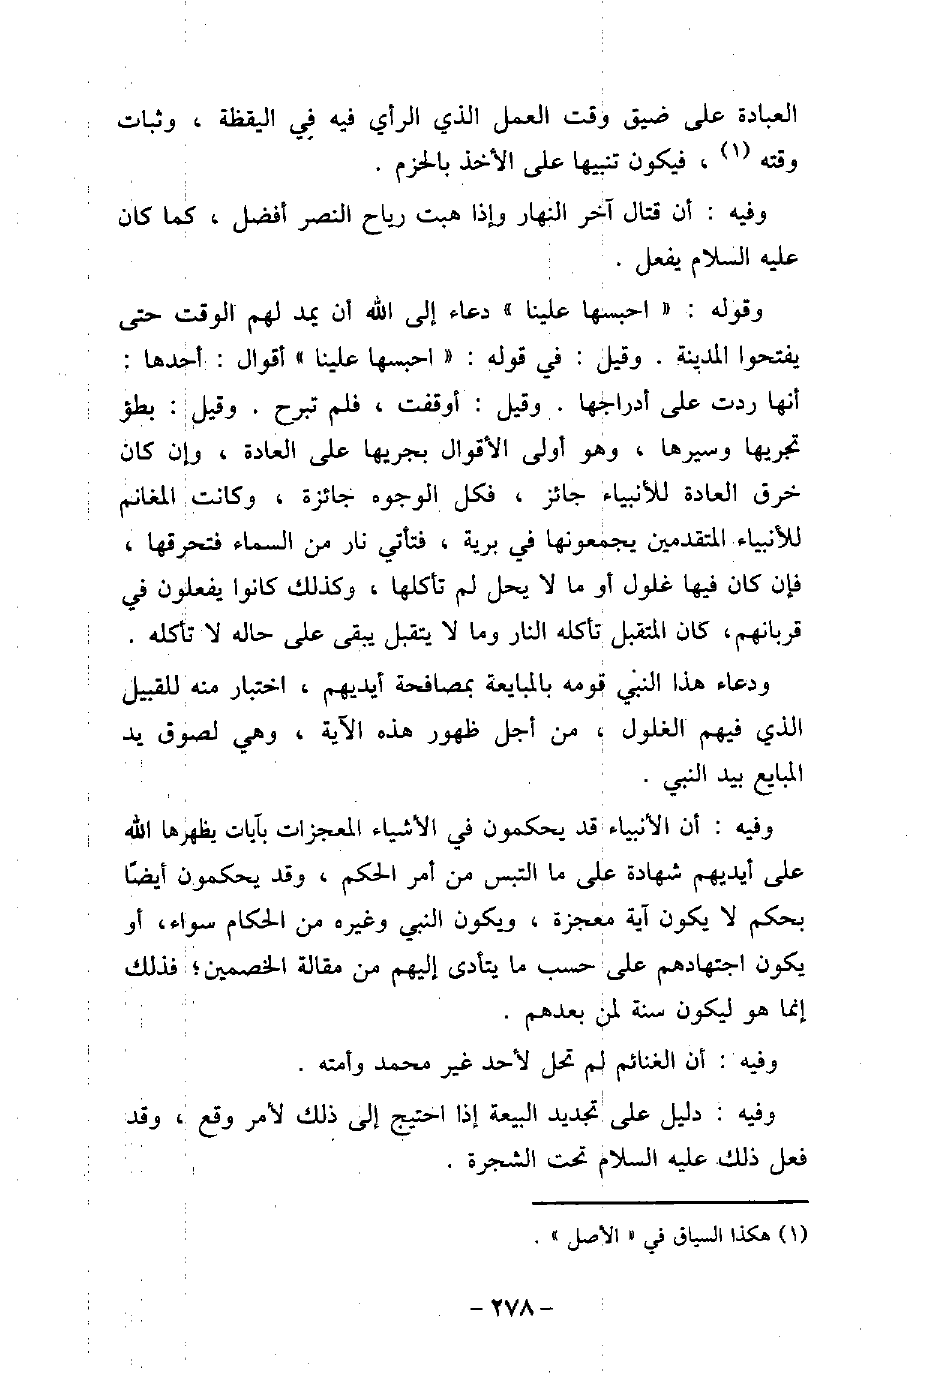 العبادة على ضيق وقت العمل الذي الرأي فيه في اليقظة ، وثبات
وقته (١) ، فيكون تنبيها على الأخذ بالحزم .
وفيه : أن قتال آخر النهار وإذا هبت رياح النصر أفضل ، كما كان
عليه السلام يفعل .
وقوله : « احبسها علينا » دعاء إلى الله أن يمد لهم الوقت حتى
يفتحوا المدينة . وقيل : في قوله : « احبسها علينا » أقوال : أحدها :
أنها ردت على أدراجها . وقيل : أوقفت ، فلم تبرح . وقيل : بطؤ
تجريها وسيرها ، وهو أولى الأقوال بجريها على العادة ، وإن كان
خرق العادة للأنبياء جائز ، فكل الوجوه جائزة ، وكانت المغانم
للأنبياء المتقدمين يجمعونها في برية ، فتأتي نار من السماء فتحرقها ،
فإن كان فيها غلول أو ما لا يحل لم تأكلها ، وكذلك كانوا يفعلون في
قربانهم، كان المتقبل تأكله النار وما لا يتقبل يبقى على حاله لا تأكله .
ودعاء هذا النبي قومه بالمبايعة بمصافحة أيديهم ، اختبار منه للقبيل
الذي فيهم الغلول ، من أجل ظهور هذه الآية ، وهي لصوق يد
المبايع بيد النبي .
وفيه : أن الأنبياء قد يحكمون في الأشياء المعجزات بآيات يظهرها الله
على أيديهم شهادة على ما التبس من أمر الحكم ، وقد يحكمون أيضًا
بحكم لا يكون آية معجزة ، ويكون النبي وغيره من الحكام سواء، أو
يكون اجتهادهم على حسب ما يتأدى إليهم من مقالة الخصمين؛ فذلك
إنما هو ليكون سنة لمن بعدهم .
وفيه : أن الغنائم لم تحل لأحد غير محمد وأمته .
وفيه : دليل على تجديد البيعة إذا احتيج إلى ذلك لأمر وقع ، وقد
فعل ذلك عليه السلام تحت الشجرة .
(١) هكذا السياق في « الأصل » .
- ٢٧٨ -